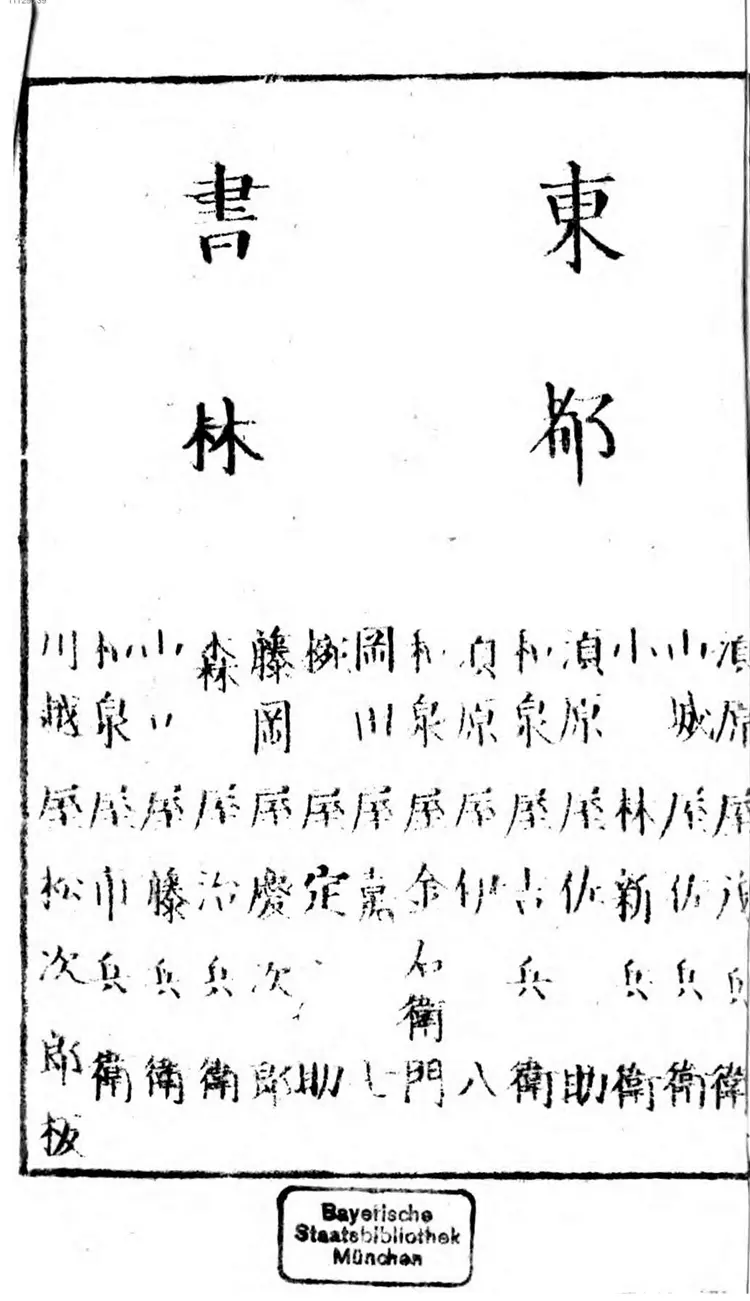 東都
書林
須原屋茂兵衛
山城屋佐兵衛
小林新兵衛
須原屋佐助
和泉屋吉兵衛
須原屋伊八
和泉屋金右衛門
岡田屋嘉七
屋定助
藤岡屋慶次郎
森屋治兵衛
山口屋藤兵衛
和泉屋市兵衛
川越屋松次郎板
Bayerische
Staatsbibliothek
München